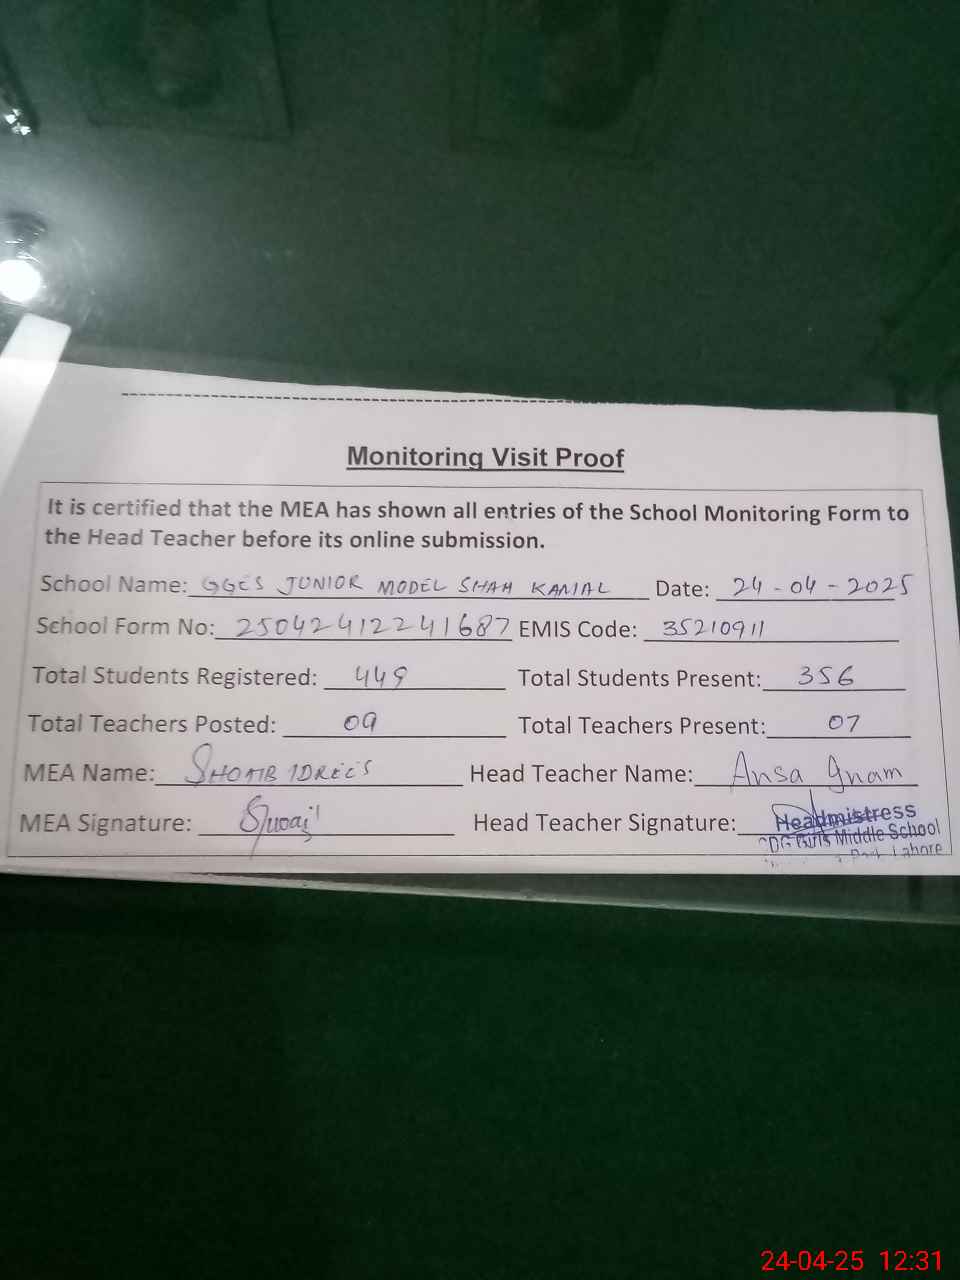 Monitoring Visit Proof
It is certified that the MEA has shown all entries of the School Monitoring Form to
the Head Teacher before its online submission.
School Name: GGES JUNIOR MODEL SHAH KAMAL Date: 24-04-2025
School Form No: 25042412241687 EMIS Code: 35210911
Total Students Registered: 449 Total Students Present: 356
Total Teachers Posted: 09 Total Teachers Present: 07
MEA Name: SHOAIB IDREES Head Teacher Name: Ansa
MEA Signature: Head Teacher Signature:
Headmistress
Middle School
Lahore
24-04-25 12:31